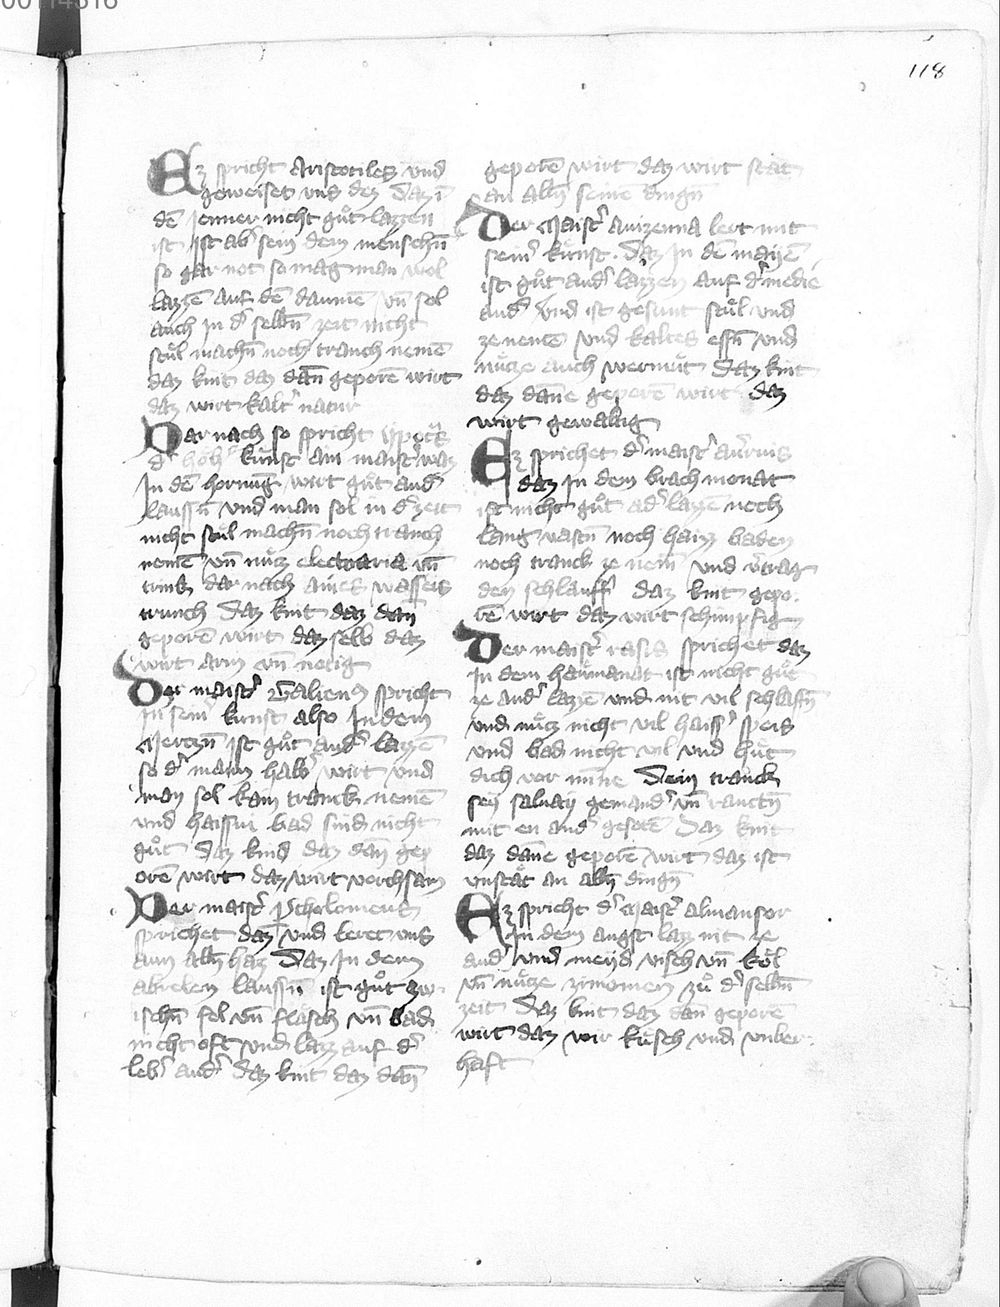 00114316
118
Ez spricht Aristotiles vnd
geweiset vns dez Daz i
dē Jenner nicht gůt lazzen
ist Ist ab sein dem menschn̄
so gar not so mag man wol
lazzē auf dē daumē vn̄ sol
auch in d' selbn̄ zeit nicht
stůl machn̄ noch tranch nemē
daz kint daz dan̄ geporē wirt
daz wirt kalt' natur
Dar nach so spricht
d' kunst ain maist' waz
In dē hornūg wirt gůt and'
laussn̄ vnd man sol in d' zeit
nicht stůl machn̄ noch tranch
nemē vn̄ nucz electuaria vn̄
trink dar nach aines wassers
trunch Daz kint daz dan̄
geporē wirt daz selb daz
wirt arm vn̄ netig
Der maist' Galienus spricht
in sein' kunst also In dem
Merczn̄ ist gůt and' lazzē
so d' mann halb' wirt vnd
man sol kain tranck nemē
vnd haissui bad sind nicht
gůt Daz kind daz dan̄ gep
orē wirt daz wirt vorchsam
Der maist' Ptholomeus
sprichet daz vnd leret vns
aun alln̄ haz Daz In dem
abrelen laussn̄ ist gůt
ischn̄ fel vn̄ flaisch vn̄ bad
nicht oft vnd lazz auf d'
leb' and' Daz kint daz dan̄
geporē wirt daz wirt stät
an alln̄ seinē dingn̄
Der Maist' auizenna lert mit
sein' kunst. Daz In dē mayē
ist gůt and' lazzen auf d' mediē
and' vnd ist gesunt stůl vnd
ze nemē vnd kaltes essn̄ vnd
nucze auch wermůt Daz kint
daz dāne geporē wirt daz
wirt gewaltig
Ez sprichet d' maist'
daz In dem brachmonat
ist nicht gůt ad' lazzē noch
lang vastn̄ noch haiz baden
noch tranck ze nem̄ vnd v'trag
den schlauff' daz kint gepo
rē wirt daz wirt schimpfig
Der maist' rasis sprichet daz
In dem haümanat ist nicht gůt
ze and' lazzē vnd nit vil schlaffn̄
vnd nucz nicht vil haiss' speis
vnd bad nicht vil vnd hüt
dich vor minne Dein tranck
sey saluay gemand' vn̄ rauctn̄
mit en and' gesotē Daz kint
daz dāne geporē wirt daz ist
vnstät an alln̄ dingn̄
Ez spricht d' Maist' almansor
In dem augst lazz nit ze
and' vnd meyd visch vn̄ köl
vn̄ nucze zimomen zů d' selbn̄
zeit Daz kint daz dan̄ geporē
wirt daz wir küsch vnd vnber
haft